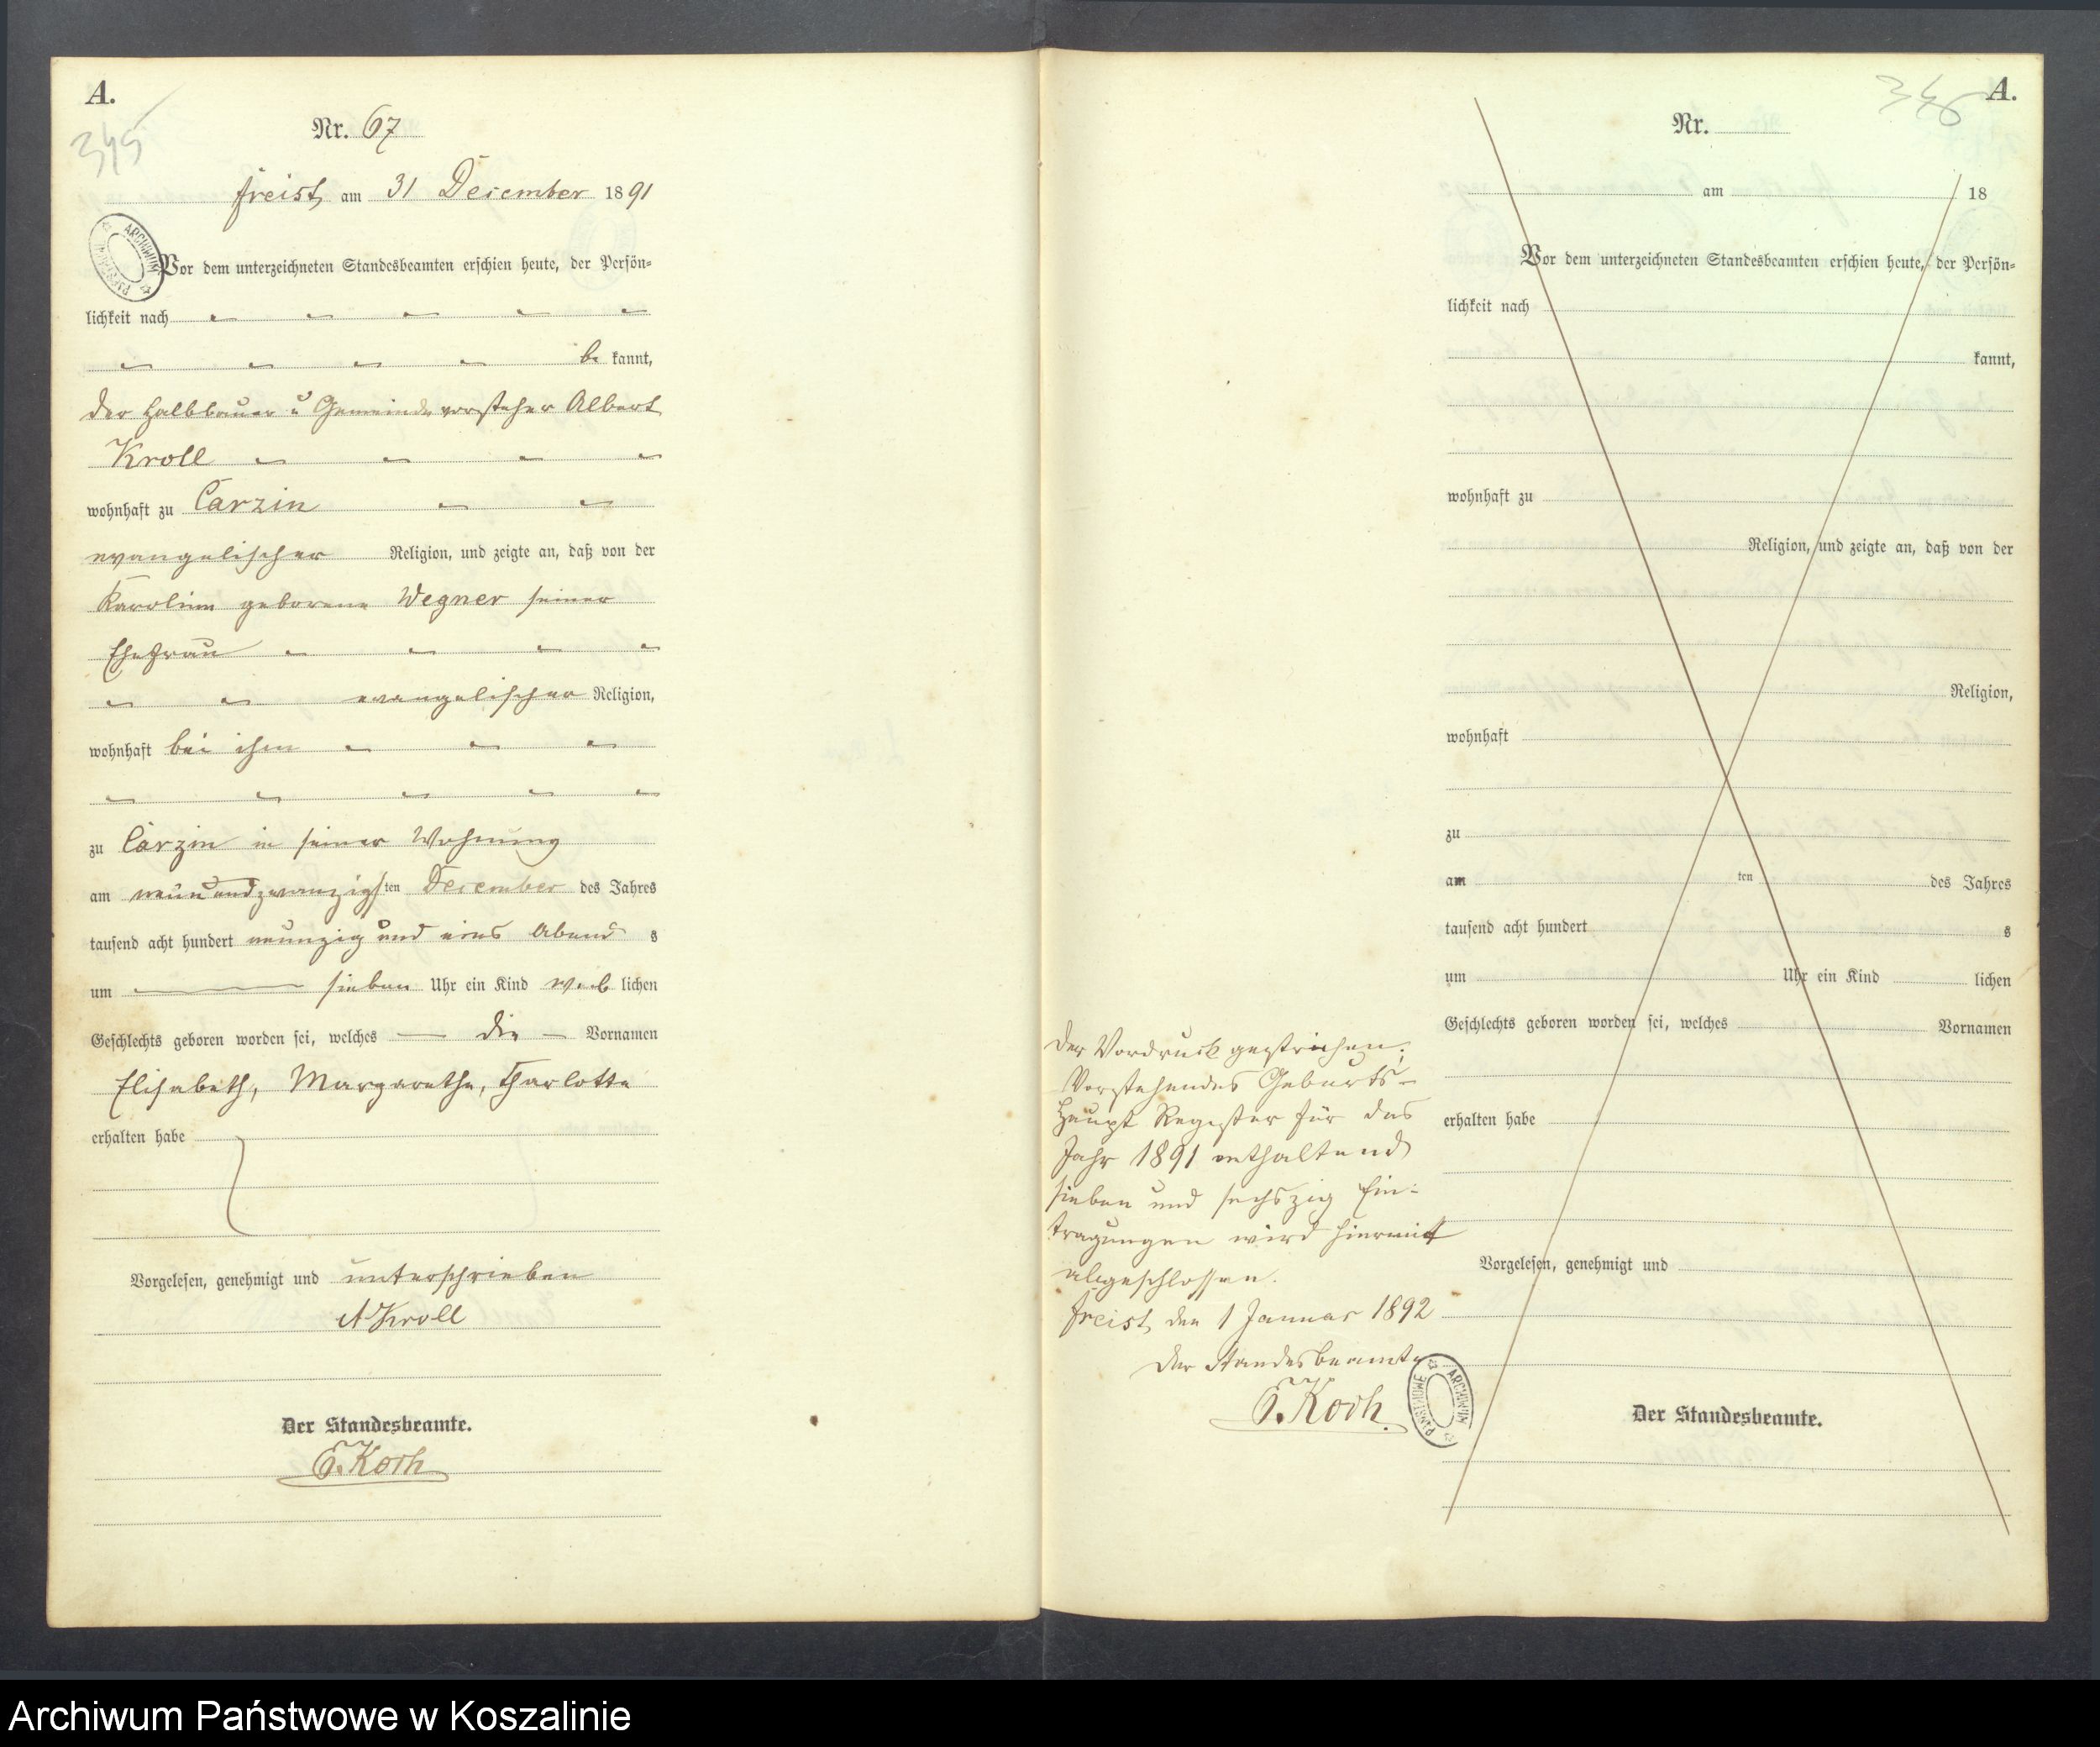 A.
345
Nr. 67
Freist, am 31 December 1891
Vor dem unterzeichneten Standesbeamten erschien heute, der Persön=
lichkeit nach
be kannt,
der Halbbauer u Gemeindevorsteher Albert
Kroll
wohnhaft zu Carzin
evangelischer Religion, und zeigte an, daß von der
Karoline geborene Wegner seiner
Ehefrau
evangelischer Religion,
wohnhaft bei ihm
zu Carzin in seiner Wohnung
am neunundzwanzigsten December des Jahres
tausend acht hundert neunzig und eins Abend s
um sieben Uhr ein Kind weib lichen
Geschlechts geboren worden sei, welches die Vornamen
Elisabeth, Margarethe, Charlotte
erhalten habe
Vorgelesen, genehmigt und unterschrieben
A Kroll
Der Standesbeamte.
E. Koch
ARCHIWUM PAŃSTWOWE
Der Vordruck gestrichen;
Vorstehendes Geburts-
Haupt Register für das
Jahr 1891 enthaltend
sieben und sechszig Ein=
tragungen wird hiermit
abgeschlossen.
Freist, den 1 Januar 1892
Der Standesbeamte
E. Koch.
ARCHIWUM PAŃSTWOWE
346
A.
Nr.
am 18
Vor dem unterzeichneten Standesbeamten erschien heute, der Persön=
lichkeit nach
kannt,
wohnhaft zu
Religion, und zeigte an, daß von der
Religion,
wohnhaft
zu
am ten des Jahres
tausend acht hundert s
um Uhr ein Kind lichen
Geschlechts geboren worden sei, welches Vornamen
erhalten habe
Vorgelesen, genehmigt und
Der Standesbeamte.
Archiwum Państwowe w Koszalinie